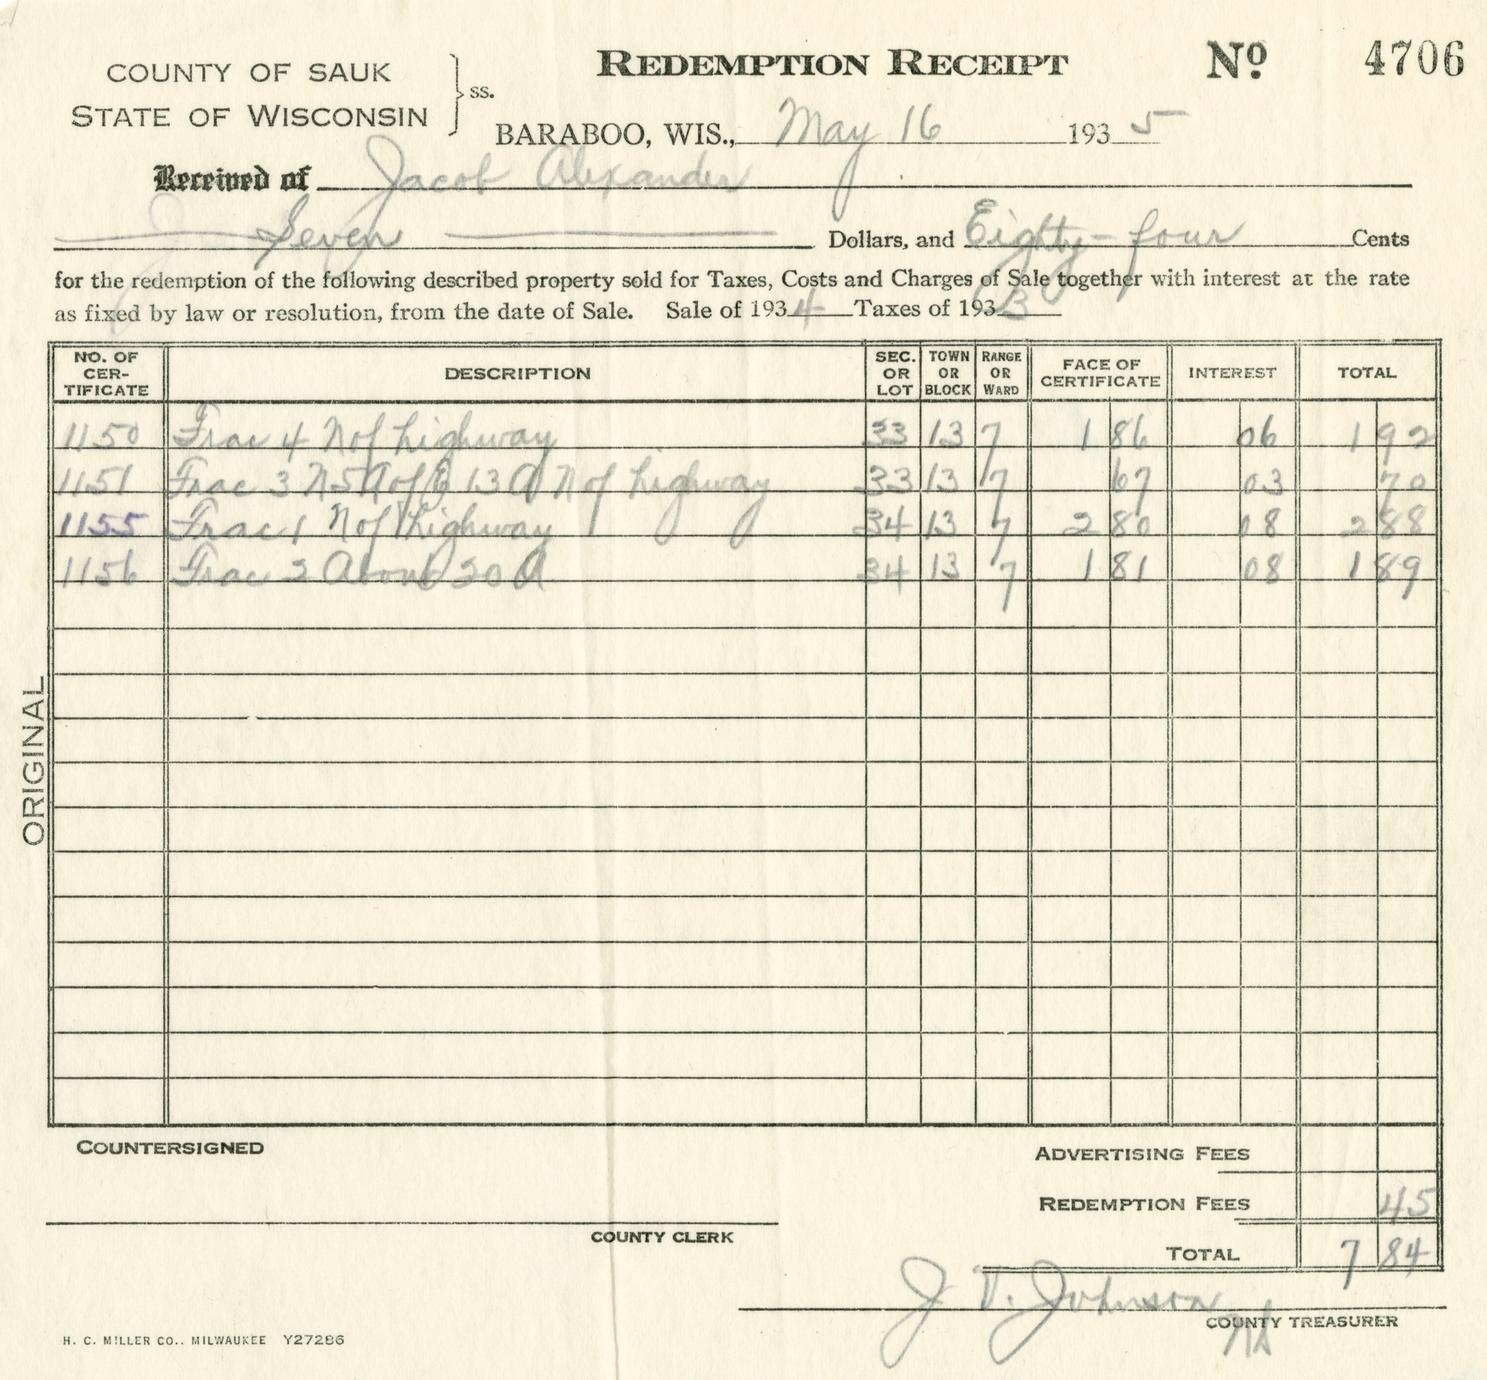 COUNTY OF SAUK
STATE OF WISCONSIN
ss.
REDEMPTION RECEIPT
No 4706
BARABOO, WIS., May 16 1935
Received of Jacob Alexander
Seven Dollars, and Eighty-four Cents
for the redemption of the following described property sold for Taxes, Costs and Charges of Sale together with interest at the rate
as fixed by law or resolution, from the date of Sale. Sale of 1934 Taxes of 1933
NO. OF CER-TIFICATE DESCRIPTION SEC. OR LOT TOWN OR BLOCK RANGE OR WARD FACE OF CERTIFICATE INTEREST TOTAL
1150 Frac 4 N of highway 33 13 7 1 86 06 1 92
1151 Frac 3 N5A of E 13 A N of highway 33 13 7 67 03 70
1155 Frac 1 N of highway 34 13 7 2 80 08 2 88
1156 Frac 2 About 20 A 34 13 7 1 81 08 1 89
ORIGINAL
COUNTERSIGNED
ADVERTISING FEES
REDEMPTION FEES 45
COUNTY CLERK
TOTAL 7 84
J. V. Johnson
COUNTY TREASURER
H. C. MILLER CO., MILWAUKEE Y27286